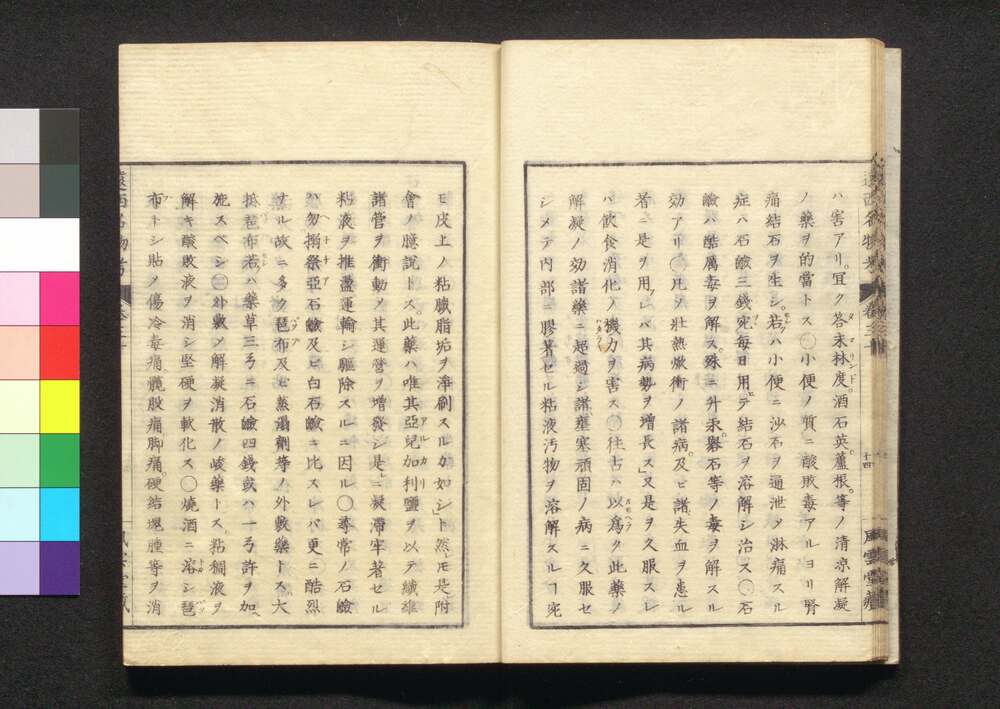 ハ害アリ。宜ク答末林度。酒石英。蘆根。等ノ清涼解凝
ノ藥ヲ的當トス〇小便ノ質ニ酸敗毒アルヨリ腎
痛結石ヲ生シ。若ハ小便ニ沙石ヲ通泄シ淋痛スル
症ハ石鹼三錢宛毎日用テ結石ヲ溶解シ治ス〇石
鹼ハ酷厲毒ヲ解ス。殊ニ升汞。礜石等ノ毒ヲ解スル
効アリ〇凡ソ壯熱焮衝ノ諸病。及ヒ諸失血ヲ患ル
者ニ是ヲ用レバ其病勢ヲ增長ス」又是ヲ久服スレ
バ飲食消化ノ機力ヲ害ス〇往古ハ以爲ク此藥ノ
解凝ノ効諸藥ニ超過シ諸壅塞頑固ノ病ニ久服セ
シメテ内部ニ膠著セル粘液汚物ヲ溶解スルヿ宛
モ皮上ノ粘膩脂垢ヲ淨刷スルカ如シ」ト然モ是附
會ノ臆說トス。此藥ハ唯其亞兒加利鹽ヲ以テ纖維
諸管ヲ衝動メ其運營ヲ增發シ是ニ凝滯牢著セル
粘液ヲ推盪運輸シ驅除スルニ因ル〇尋常ノ石鹼
ハ勿搦祭亞石鹼及ヒ白石鹼ニ比スレバ更ニ酷烈
ナル故ニ多ク琶布及ヒ蒸溻劑等ノ外敷藥トス。大
抵琶布若ハ藥草三弓ニ石鹼四錢或ハ一弓許ヲ加
施スベシ〇外敷ノ解凝消散ノ峻藥トス。粘稠液ヲ
解キ酸敗液ヲ消シ堅硬ヲ軟化ス〇燒酒ニ溶シ琶
布トシ貼メ傷冷毒痛。髖股痛。脚痛。硬結塊腫等ヲ消